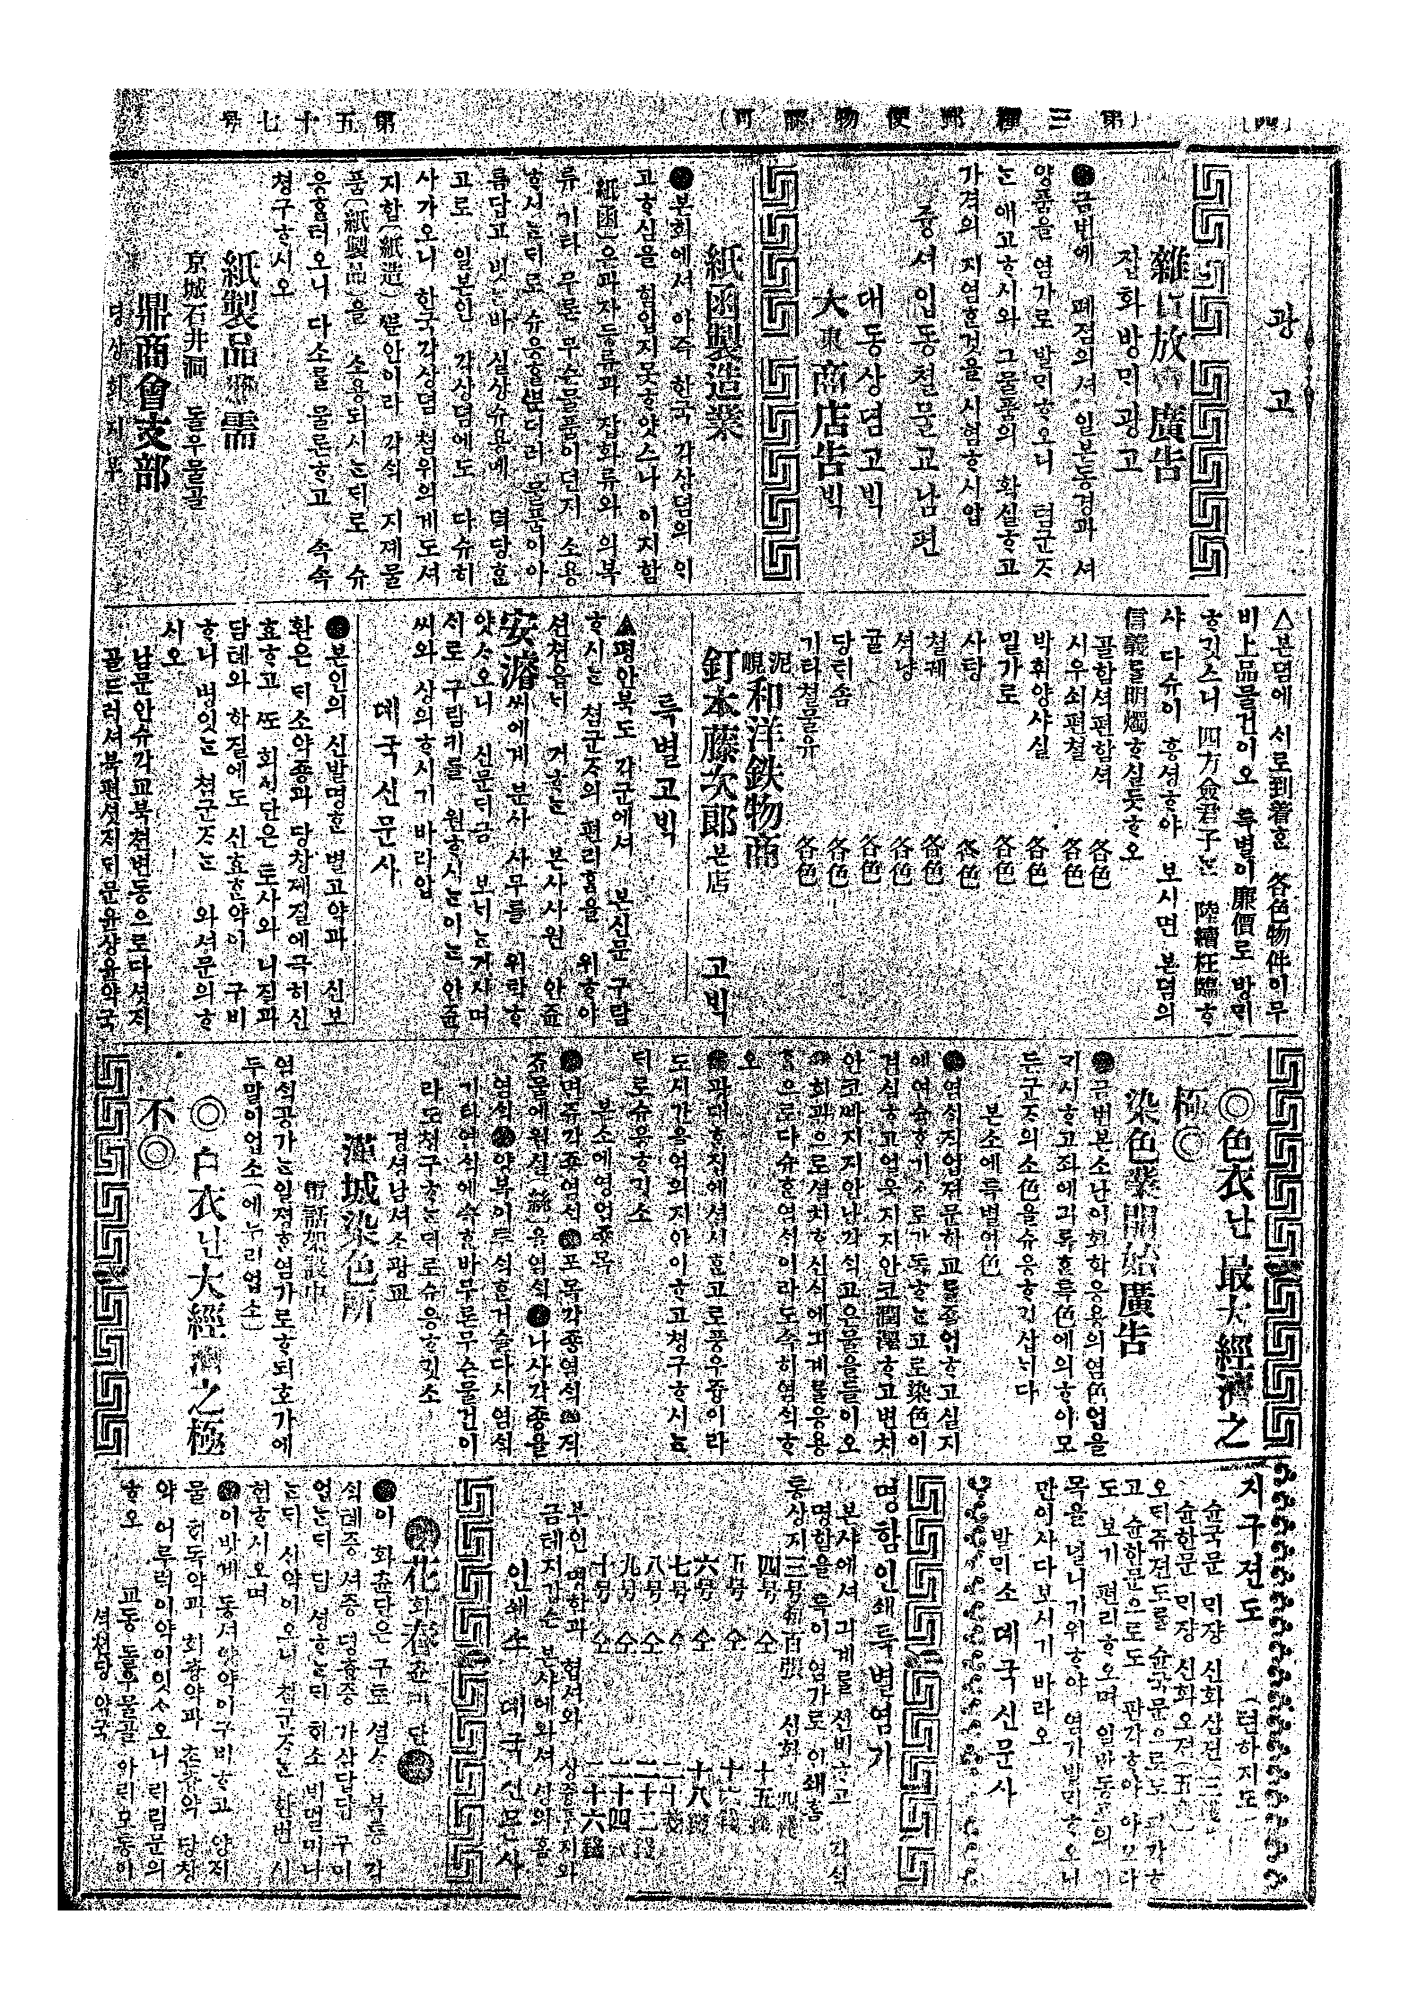 (四)
(第三種郵便物認可)
第五十七号
광고
雜 放 廣告
잡화방ᄆᆡ광고
금번에 폐졈의셔 일본동경과 셔
양품을 염가로 발ᄆᆡᄒᆞ오니 쳠군ᄌᆞ
ᄂᆞᆫ 애고ᄒᆞ시와 그물품의 확실ᄒᆞ고
가격의 지렴ᄒᆞᆫ것을 시험ᄒᆞ시압
즁셔입동쳘물교남편
대동상뎜고ᄇᆡᆨ
大東商店告ᄇᆡᆨ
紙函製造業
본회에셔 아즉 한국 각상뎜의 ᄋᆡ
고ᄒᆞ심을 힘입지못ᄒᆞ얏스나 이지함
(紙函)은과자등류과 잡화류와 의복
류 기타 무론 무슨물품이던지 소용
ᄒᆞ시ᄂᆞᆫᄃᆡ로 슈응ᄒᆞᆯᄲᅮᆫ더러 물품이아
름답고 빗ᄂᆞᆫ바 실상슈용메 뎍당ᄒᆞᆫ
고로 일본안 각상뎜에도 다슈히
사가오니 한국각상뎜 쳠위의게도셔
지함(紙造)ᄲᅮᆫ안이라 각ᄉᆡᆨ 지졔물
품(紙製品)을 소용되시ᄂᆞᆫᄃᆡ로 슈
응ᄒᆞ터오니 다소를 물론ᄒᆞ고 속속
쳥구ᄒᆞ시오
紙製品 需
京城石井洞 돌우물골
鼎商會支部
뎡상회지부
△본뎜에 ᄉᆡ로到着ᄒᆞᆫ 各色物件이무
비上品물건이오 특별이廉價로 방ᄆᆡ
ᄒᆞ깃스니 四方僉君子ᄂᆞᆫ 陸續枉臨ᄒᆞ
샤 다슈이 흥셩ᄒᆞ야 보시면 본뎜의
信義를明燭ᄒᆞ실듯ᄒᆞ오
골함셕편함셕 各色
시우쇠편쳘 各色
박휘양사실 各色
밀가로 各色
사탕 各色
쳘궤 各色
셔냥 各色
귤 各色
당ᄐᆡ솜 各色
기타쳘물유 各色
泥峴和洋鉄物商
釘本藤次郎本店 고ᄇᆡᆨ
특별고ᄇᆡᆨ
▲평안북도 각군에셔 본신문 구람
ᄒᆞ시ᄂᆞᆫ 쳠군ᄌᆞ의 편리ᄒᆞᆷ을 위ᄒᆞ야
션쳔읍ᄂᆡ 거ᄒᆞᄂᆞᆫ 본사사원 안쥰
安濬씨에게 분사 사무를 위탁ᄒᆞ
얏ᄉᆞ오니 신문ᄃᆡ금 보ᄂᆡᄂᆞᆫ거시며
ᄉᆡ로 구람키를 원ᄒᆞ시ᄂᆞᆫ이ᄂᆞᆫ 안쥰
씨와 상의ᄒᆞ시기 바라압
뎨국신문사
본인의 신발명ᄒᆞᆫ 별고약과 신보
환은 ᄃᆡ소약종과 당창졔질에극히신
효ᄒᆞ고 ᄯᅩ 회ᄉᆡᆼ단은 토사와 ᄂᆡ질과
담톄와 학질에도 신효ᄒᆞᆫ약이 구비
ᄒᆞ니 병잇ᄂᆞᆫ 쳠군ᄌᆞᄂᆞᆫ 와셔문의ᄒᆞ
시오
남문안슈각교북쳔변동으로다섯ᄌᆡ
골드러셔북편셧ᄌᆡᄃᆡ문윤상윤약국
◎色衣난 最大經濟之
極◎
染色業開始廣告
금번본소난이화학응용의염色업을
ᄀᆡ시ᄒᆞ고좌에긔록ᄒᆞᆫ특色에의ᄒᆞ야모
든군ᄌᆞ의소色을슈응ᄒᆞ깃삽ᄂᆡ다
본소에특별염色
염ᄉᆡᆨ직업젼문학교를졸업ᄒᆞ고실지
에연슙ᄒᆞ기 로가독ᄒᆞᄂᆞᆫ고로染色이
겸십ᄒᆞ고얼욱지지안코潤澤ᄒᆞ고변치
안코ᄲᅡ지지안난각ᄉᆡᆨ고은물을들이오
회관으로셜치ᄒᆞᆫ신식에긔계를응용
ᄒᆞᆷ으로다슈ᄒᆞᆫ염ᄉᆡᆨ이라도속히염ᄉᆡᆨᄒᆞ
오
광대ᄒᆞᆫ집에셔시ᄒᆞᆫ고로풍우즁이라
도시간을억의지아이ᄒᆞ고쳥구ᄒᆞ시ᄂᆞᆫ
ᄃᆡ로슈응ᄒᆞ깃소
본소에영업죵목
면쥬각죵염ᄉᆡᆨ 포목각죵염ᄉᆡᆨ
죠물에원실(絲)은염ᄉᆡᆨ 나사각죵을
염ᄉᆡᆨ 양복이ᄐᆡᄉᆡᆨᄒᆞᆫ거슬다시염ᄉᆡᆨ
기타염ᄉᆡᆨ에슈ᄒᆞᆫ바무론무슨물건이
라도쳥구ᄒᆞᄂᆞᆫᄃᆡ로슈응ᄒᆞ깃소
경셩남셔소광교
漢城染色所
電話架設中
염ᄉᆡᆨ공가ᄂᆞᆫ일졍ᄒᆞᆫ염가로ᄒᆞ되호가에
두말이업소(에누리업소)
◎ 白衣난大經濟之極
不◎
지구젼도 (텬하지도)
슌국문 ᄆᆡ쟝 신화삼젼
슌한문 ᄆᆡ쟝 신화오젼
오ᄃᆡ쥬젼도를 슌국문으로도 판각ᄒᆞ
고 슌한문으로도 판각ᄒᆞ야 아모라
도 보기 편리ᄒᆞ오며 일반동포의 이
목을 널니기위ᄒᆞ야 염가발ᄆᆡᄒᆞ오니
만이사다보시기 바라오
발ᄆᆡ소 뎨국신문사
명함인쇄특별염가
본샤에셔 긔계를션비ᄒᆞ고 각식
명함을 특이 염가로 인쇄홈
통상지三号 百張 신화
四号 仝 十五錢
五号 仝
六号 仝 十八錢
七号 仝 二十錢
八号 仝 二十二錢
九号 仝 二十四
十号 仝 二十六錢
부인 명함과 협셔와 상즁 지와
금테지갑슨 본샤에와셔상의홈
인쇄소 뎨국신문사
花화春츈 단
이 화츈단은 구토 셜ᄉᆞ 복통 각
ᄉᆡᆨ톄증 셔증 뎡츙증 가삼답답 구미
업ᄂᆞᆫᄃᆡ 담 셩ᄒᆞᄂᆞᆫᄃᆡ 회소 비멀미나
ᄂᆞᆫᄃᆡ 시약이오니 쳠군ᄌᆞᄂᆞᆫ 한번 시
험ᄒᆞ시오며
이밧게 동셔양약이구비ᄒᆞ고 양지
물 회독약과 회츙약과 초 약 당창
약 어루럭이약이잇ᄉᆞ오니 ᄅᆡ림문의
ᄒᆞ오 교동 돌우물골 아ᄅᆡ모동이
셔쳔당 약국